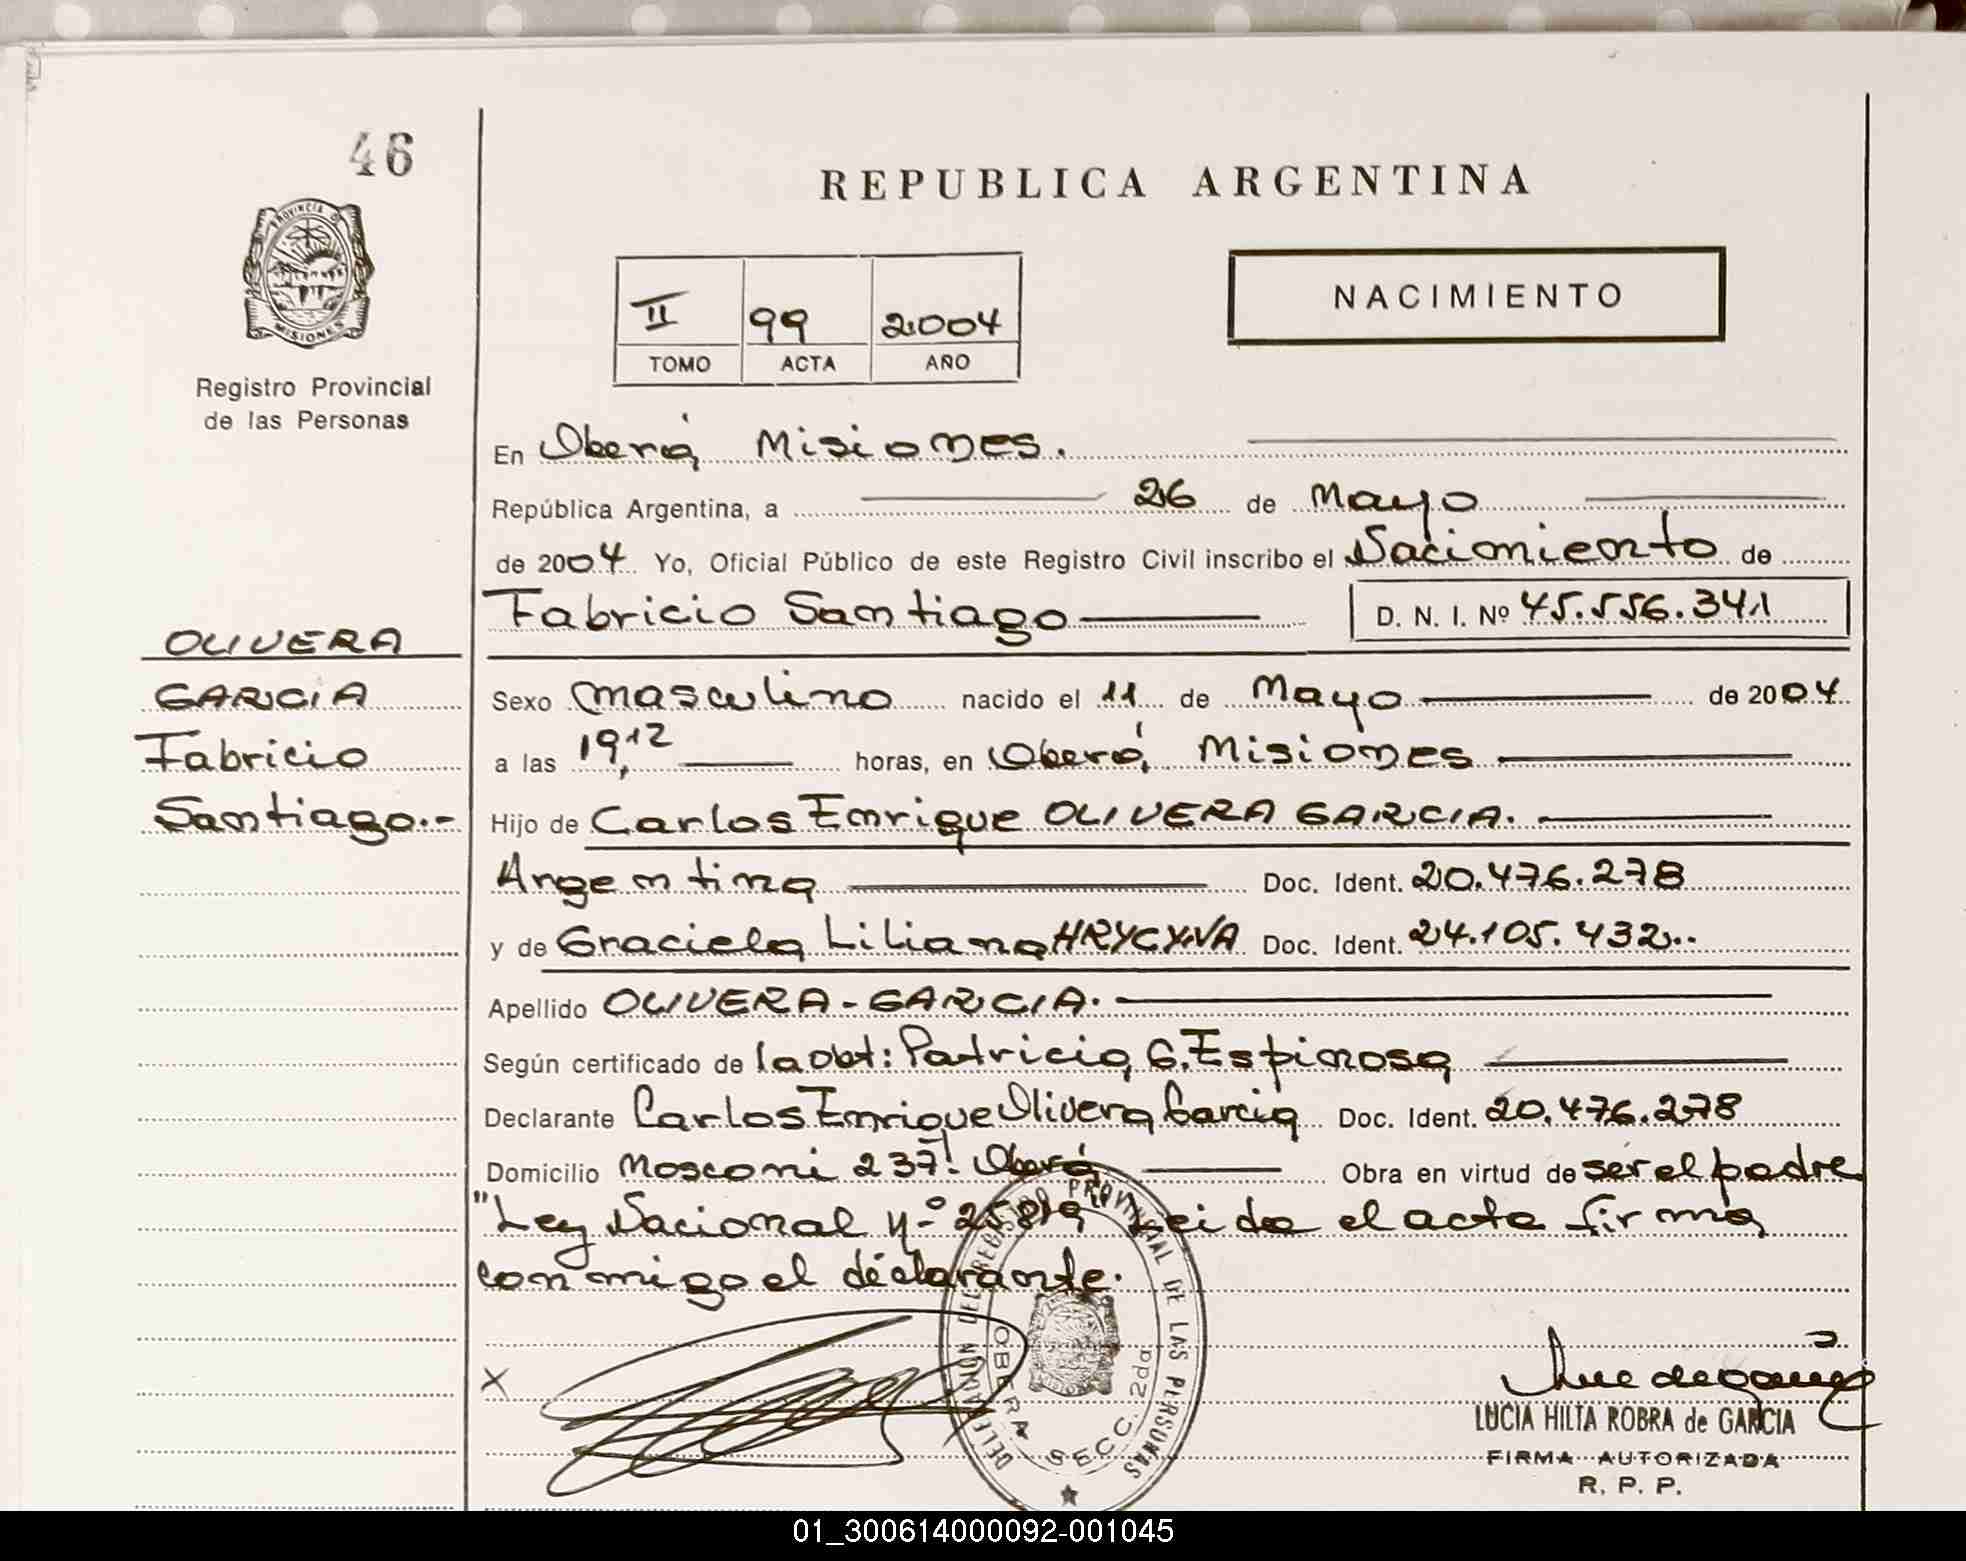 46
PROVINCIA DE
MISIONES
Registro Provincial
de las Personas
REPUBLICA ARGENTINA
II 99 2.004
TOMO ACTA AÑO
NACIMIENTO
En Oberá, Misiones.
República Argentina, a 26 de Mayo
de 2004 Yo, Oficial Público de este Registro Civil inscribo el Nacimiento de
Fabricio Santiago D. N. I. Nº 45.556.341
OLIVERA
GARCIA
Fabricio
Santiago.-
Sexo masculino nacido el 11 de Mayo de 2004
a las 19,12 horas, en Oberá, Misiones
Hijo de Carlos Enrique OLIVERA GARCIA.
Argentina Doc. Ident. 20.476.278
y de Graciela Liliana HRYCYNA Doc. Ident. 24.105.432..
Apellido OLIVERA-GARCIA.
Según certificado de la obt: Patricia G. Espinosa
Declarante Carlos Enrique Olivera Garcia Doc. Ident. 20.476.278
Domicilio Mosconi 237. Oberá Obra en virtud de ser el padre
"Ley Nacional nº 25819 Leida el acta firma
conmigo el declarante.
X
DELEGACION DEL REGISTRO PROVINCIAL DE LAS PERSONAS
OBERA SECC. 2da
LUCIA HILTA ROBRA de GARCIA
FIRMA AUTORIZADA
R. P. P.
01_300614000092-001045